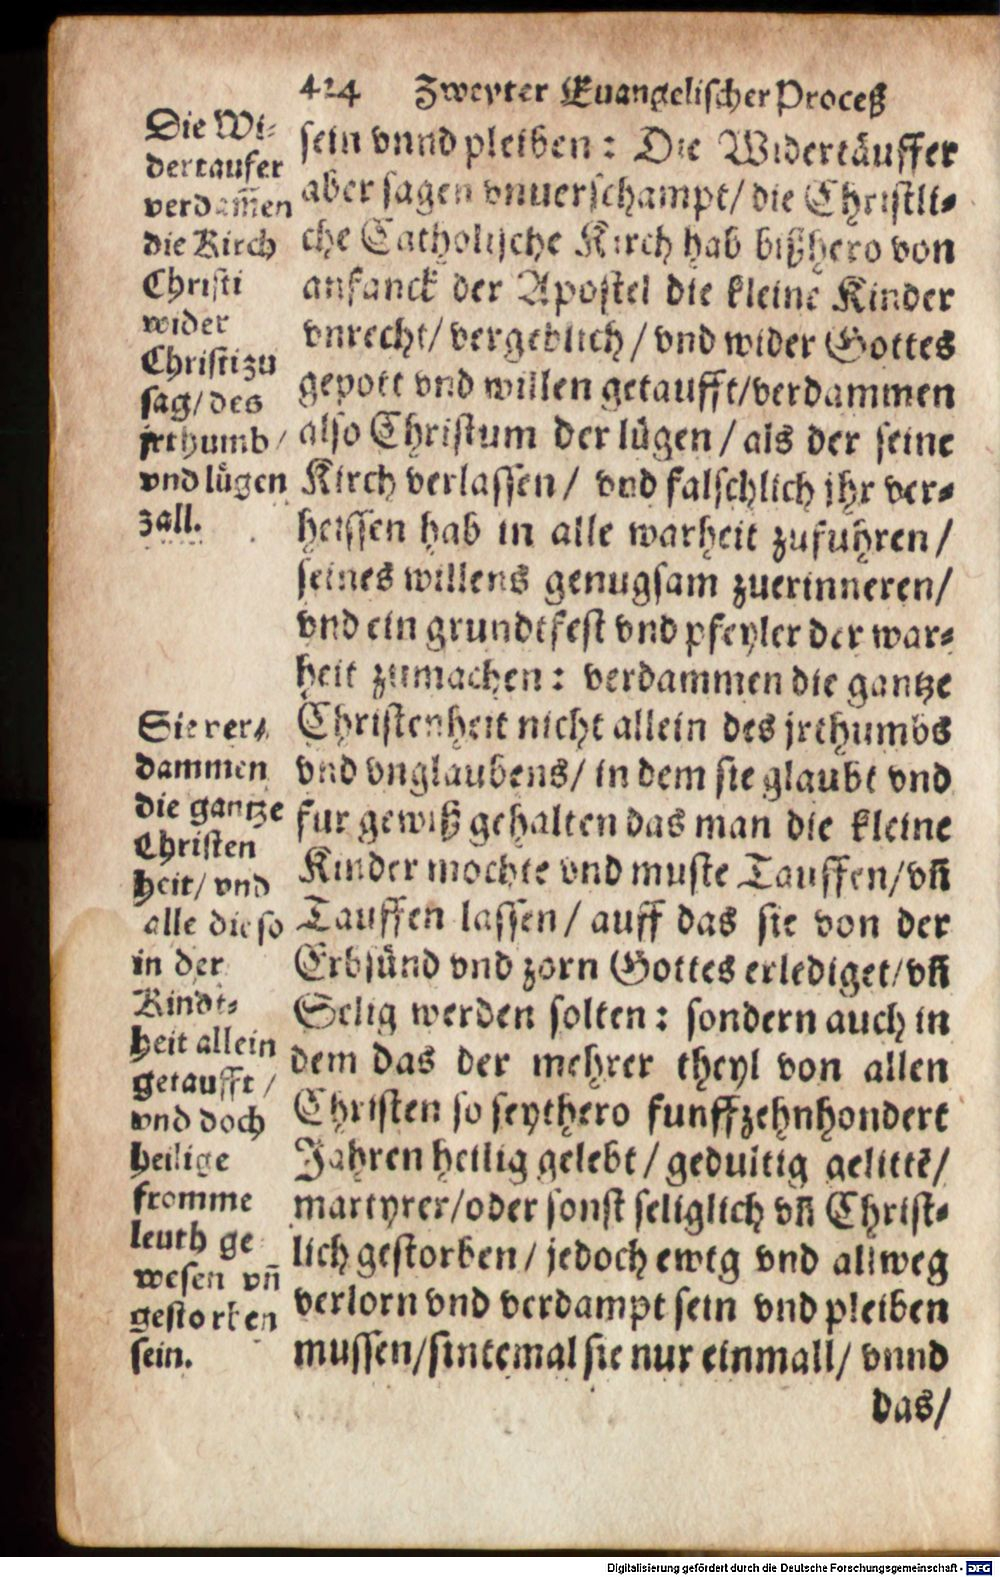 424 Zweyter Euangelischer Proceß
Die Wi⸗
dertaufer
verdam̃en
die Kirch
Christi
wider
Christi zu
sag/ des
jrthumb/
vnd lügen
zall.
sein vnnd pleiben: Die Widertäuffer
aber sagen vnuerschampt/ die Christli⸗
che Catholische Kirch hab bißhero von
anfanck der Apostel die kleine Kinder
vnrecht/ vergeblich/ vnd wider Gottes
gepott vnd willen getaufft/ verdammen
also Christum der lügen/ als der seine
Kirch verlassen/ vnd falschlich jhr ver⸗
heissen hab in alle warheit zufuhren/
seines willens genugsam zuerinneren/
vnd ein grundtfest vnd pfeyler der war⸗
heit zumachen: verdammen die gantze
Christenheit nicht allein des jrthumbs
vnd vnglaubens/ in dem sie glaubt vnd
fur gewiß gehalten das man die kleine
Kinder mochte vnd muste Tauffen/ vñ
Tauffen lassen/ auff das sie von der
Erbsünd vnd zorn Gottes erlediget/ vñ
Selig werden solten: sondern auch in
dem das der mehrer theyl von allen
Christen so seythero funffzehnhondert
Jahren heilig gelebt/ gedultig gelittē/
martyrer/ oder sonst seliglich vñ Christ⸗
lich gestorben/ jedoch ewig vnd allweg
verlorn vnd verdampt sein vnd pleiben
mussen/ sintemal sie nur einmall/ vnnd
das/
Sie ver⸗
dammen
die gantze
Christen
heit/ vnd
alle die so
in der
Kindt⸗
heit allein
getaufft/
vnd doch
heilige
fromme
leuth ge
wesen vñ
gestorben
sein.
Digitalisierung gefördert durch die Deutsche Forschungsgemeinschaft - DFG